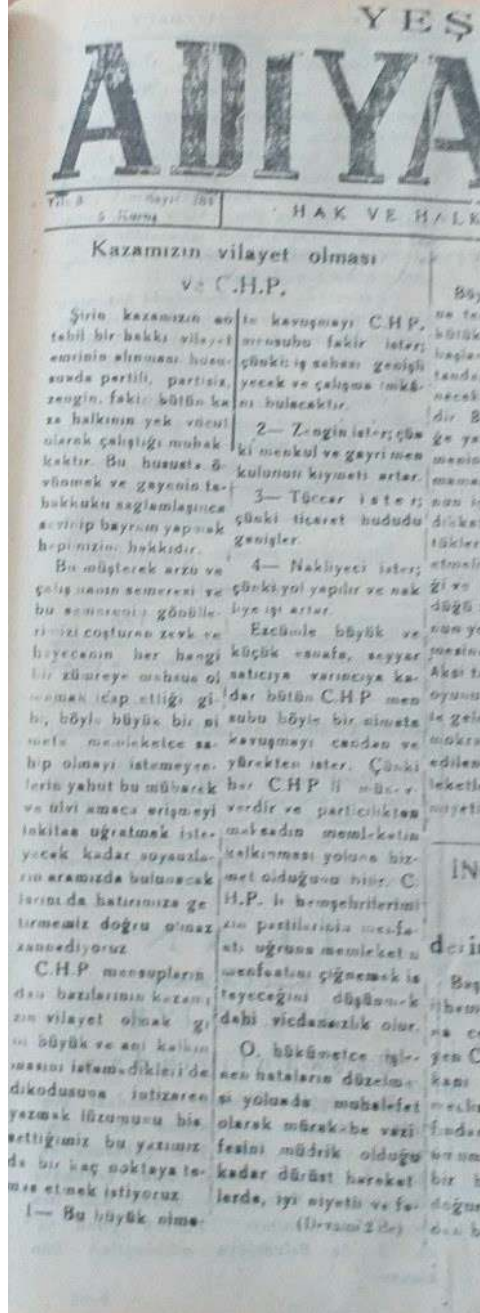 YEŞ
ADIYA
5 Kuruş
HAK VE HALK
Kazamızın vilayet olması
ve C.H.P.
Şirin kazamızın en
tabii bir hakkı vilayet
emrinin alınması husu-
sunda partili, partisiz,
zengin, fakir bütün ka
za halkının yek vücut
olarak çalıştığı muhak
kaktır. Bu hususta ö-
vünmek ve gayenin ta-
hakkuku sağlamlaşınca
sevinip bayram yapmak
hepimizin hakkıdır.
Bu müşterek arzu ve
çalışmanın semeresi ve
bu semerenin gönülle-
rimizi coşturan zevk ve
heyecanın her hangi
bir zümreye mahsus ol
mamak icap ettiği gi-
bi, böyle büyük bir ni
mete memleketce sa-
hip olmayı istemeyen-
lerin yahut bu mübarek
ve ulvi amaca erişmeyi
inkitaa uğratmak iste-
yecek kadar soysuzla-
rın aramızda bulunacak
larını da hatırımıza ge
tirmemiz doğru olmaz
zannediyoruz
C.H.P mensupların
dan bazılarının kazamı
zın vilayet olmak gi
bi büyük ve ani kalkın
masını istemedikleri de
dikodusuna intizaren
yazmak lüzumunu his
settiğimiz bu yazımız
da bir kaç noktaya te-
mas etmek istiyoruz
1— Bu büyük nime-
te kavuşmayı C.H.P.
mensubu fakir ister;
çünki iş sahası genişli
yecek ve çalışma imkâ-
nı bulacaktır.
2— Zengin ister; çün
ki menkul ve gayri men
kulunun kıymeti artar.
3— Tüccar ister;
çünki ticaret hududu
genişler.
4— Nakliyeci ister;
çünki yol yapılır ve nak
liye işi artar.
Ezcümle büyük ve
küçük esnafa, seyyar
satıcıya varıncıya ka-
dar bütün C.H.P men
subu böyle bir nimete
kavuşmayı candan ve
yürekten ister. Çünki
her C.H.P li münev-
verdir ve particilikten
maksadın memleketin
kalkınması yoluna hiz-
met olduğunu bilir. C.
H.P. li hemşehrilerimi-
zin partilerinin menfa-
atı uğruna memleket
menfaatını çiğnemek is
teyeceğini düşünmek
dahi vicdansızlık olur.
O, hükümetce işle-
nen hataların düzelme-
si yolunda muhalefet
olarak mürakabe vazi
fesini müdrik olduğu
kadar dürüst hareket
lerde, iyi niyetli ve fa-
(Devamı 2 de)